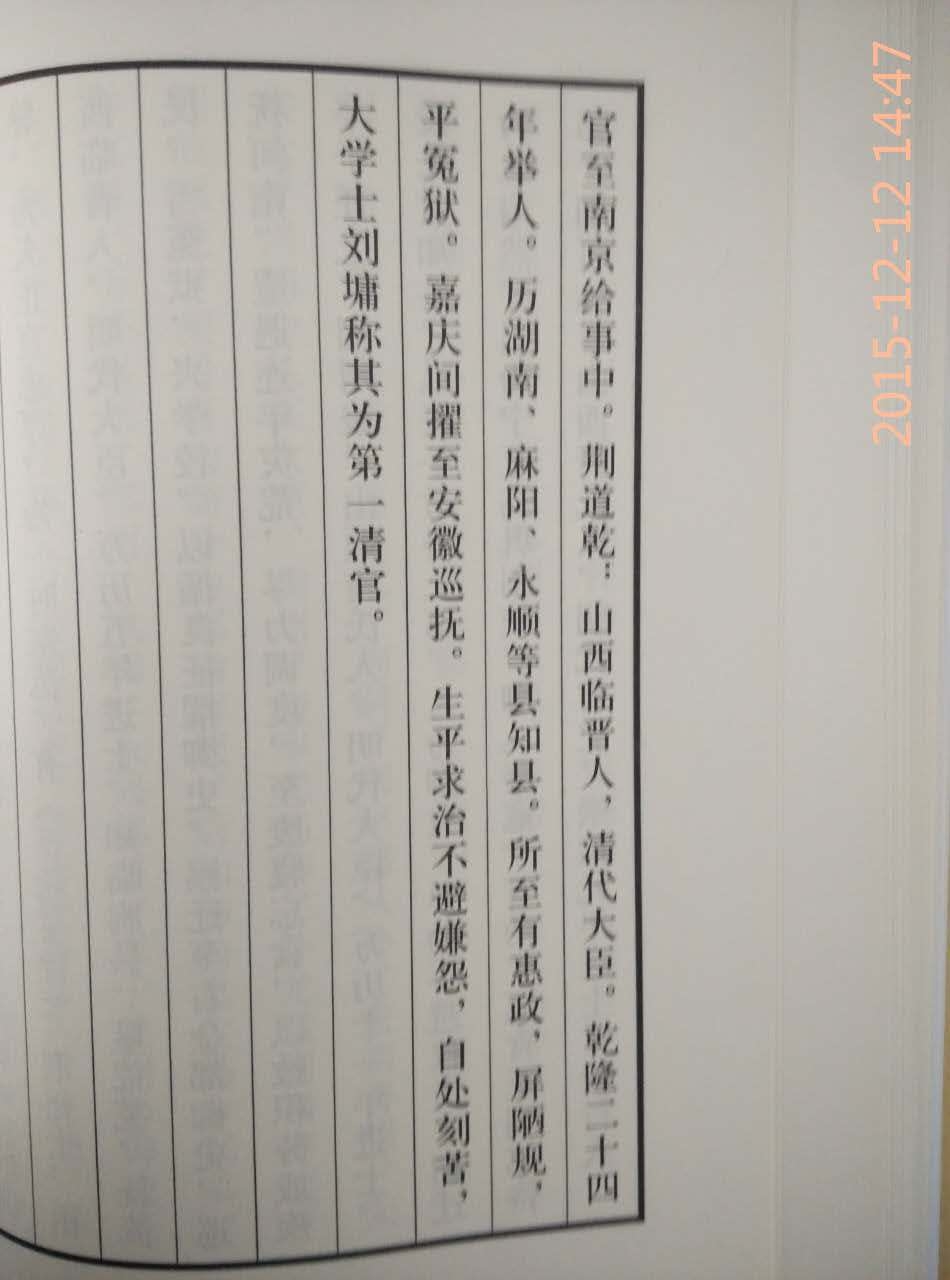 官至南京给事中。荆道乾：山西临晋人，清代大臣。乾隆二十四
年举人。历湖南、麻阳、永顺等县知县。所至有惠政，屏陋规，
平冤狱。嘉庆间擢至安徽巡抚。生平求治不避嫌怨，自处刻苦，
大学士刘墉称其为第一清官。
2015-12-12 14:47